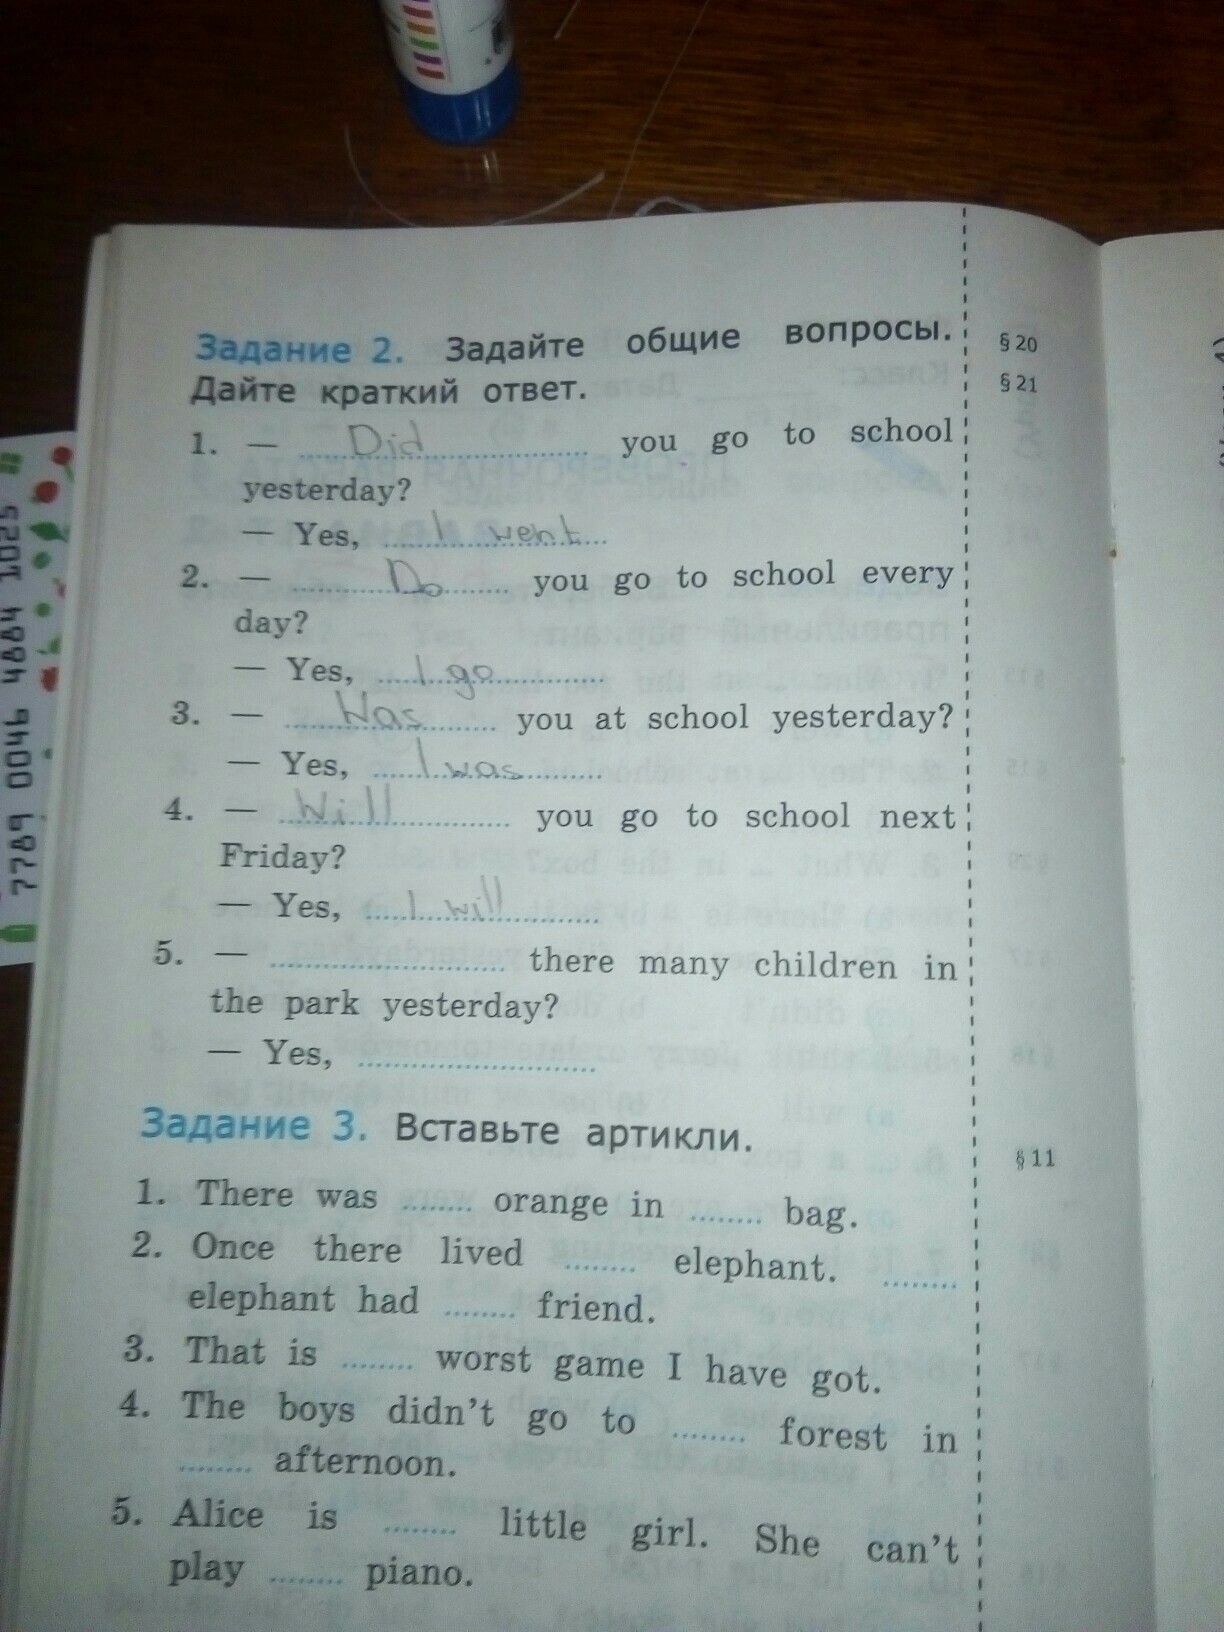 Задание 2. Задайте общие вопросы.
§ 20
Дайте краткий ответ.
§ 21
1. — Did you go to school
yesterday?
— Yes, I went
2. — Do you go to school every
day?
— Yes, I go
3. — Was you at school yesterday?
— Yes, I was
4. — Will you go to school next
Friday?
— Yes, I will
5. — ........ there many children in
the park yesterday?
— Yes, ........
Задание 3. Вставьте артикли.
§ 11
1. There was ........ orange in ........ bag.
2. Once there lived ........ elephant. ........
elephant had ........ friend.
3. That is ........ worst game I have got.
4. The boys didn't go to ........ forest in
........ afternoon.
5. Alice is ........ little girl. She can't
play ........ piano.
7789 0046 4884 1025